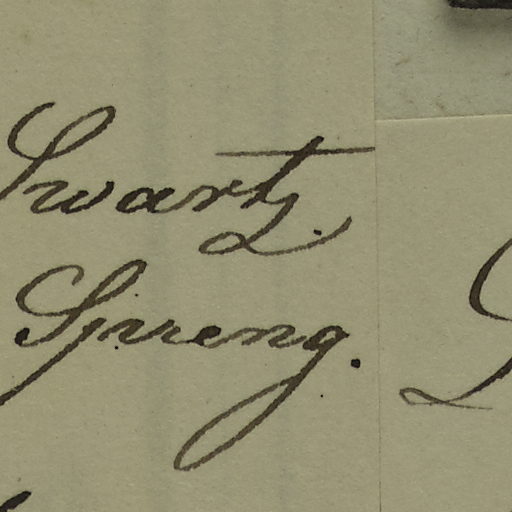 Swartz.
Spreng.